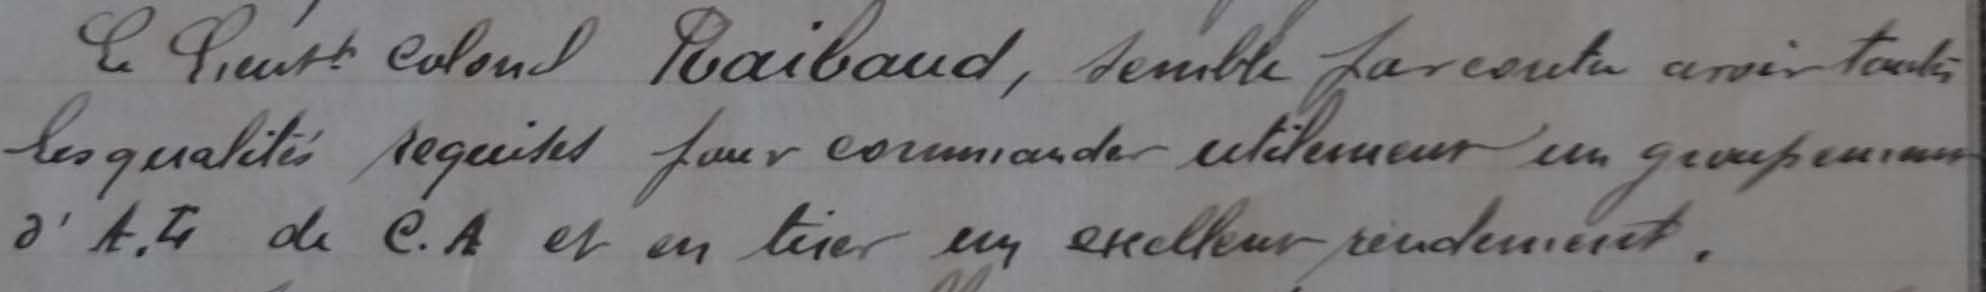 Le Lieutt Colonel Raibaud, semble par contre avoir toutes
les qualités requises pour commander utilement un groupement
d' A.L de C.A et en tirer un excellent rendement.